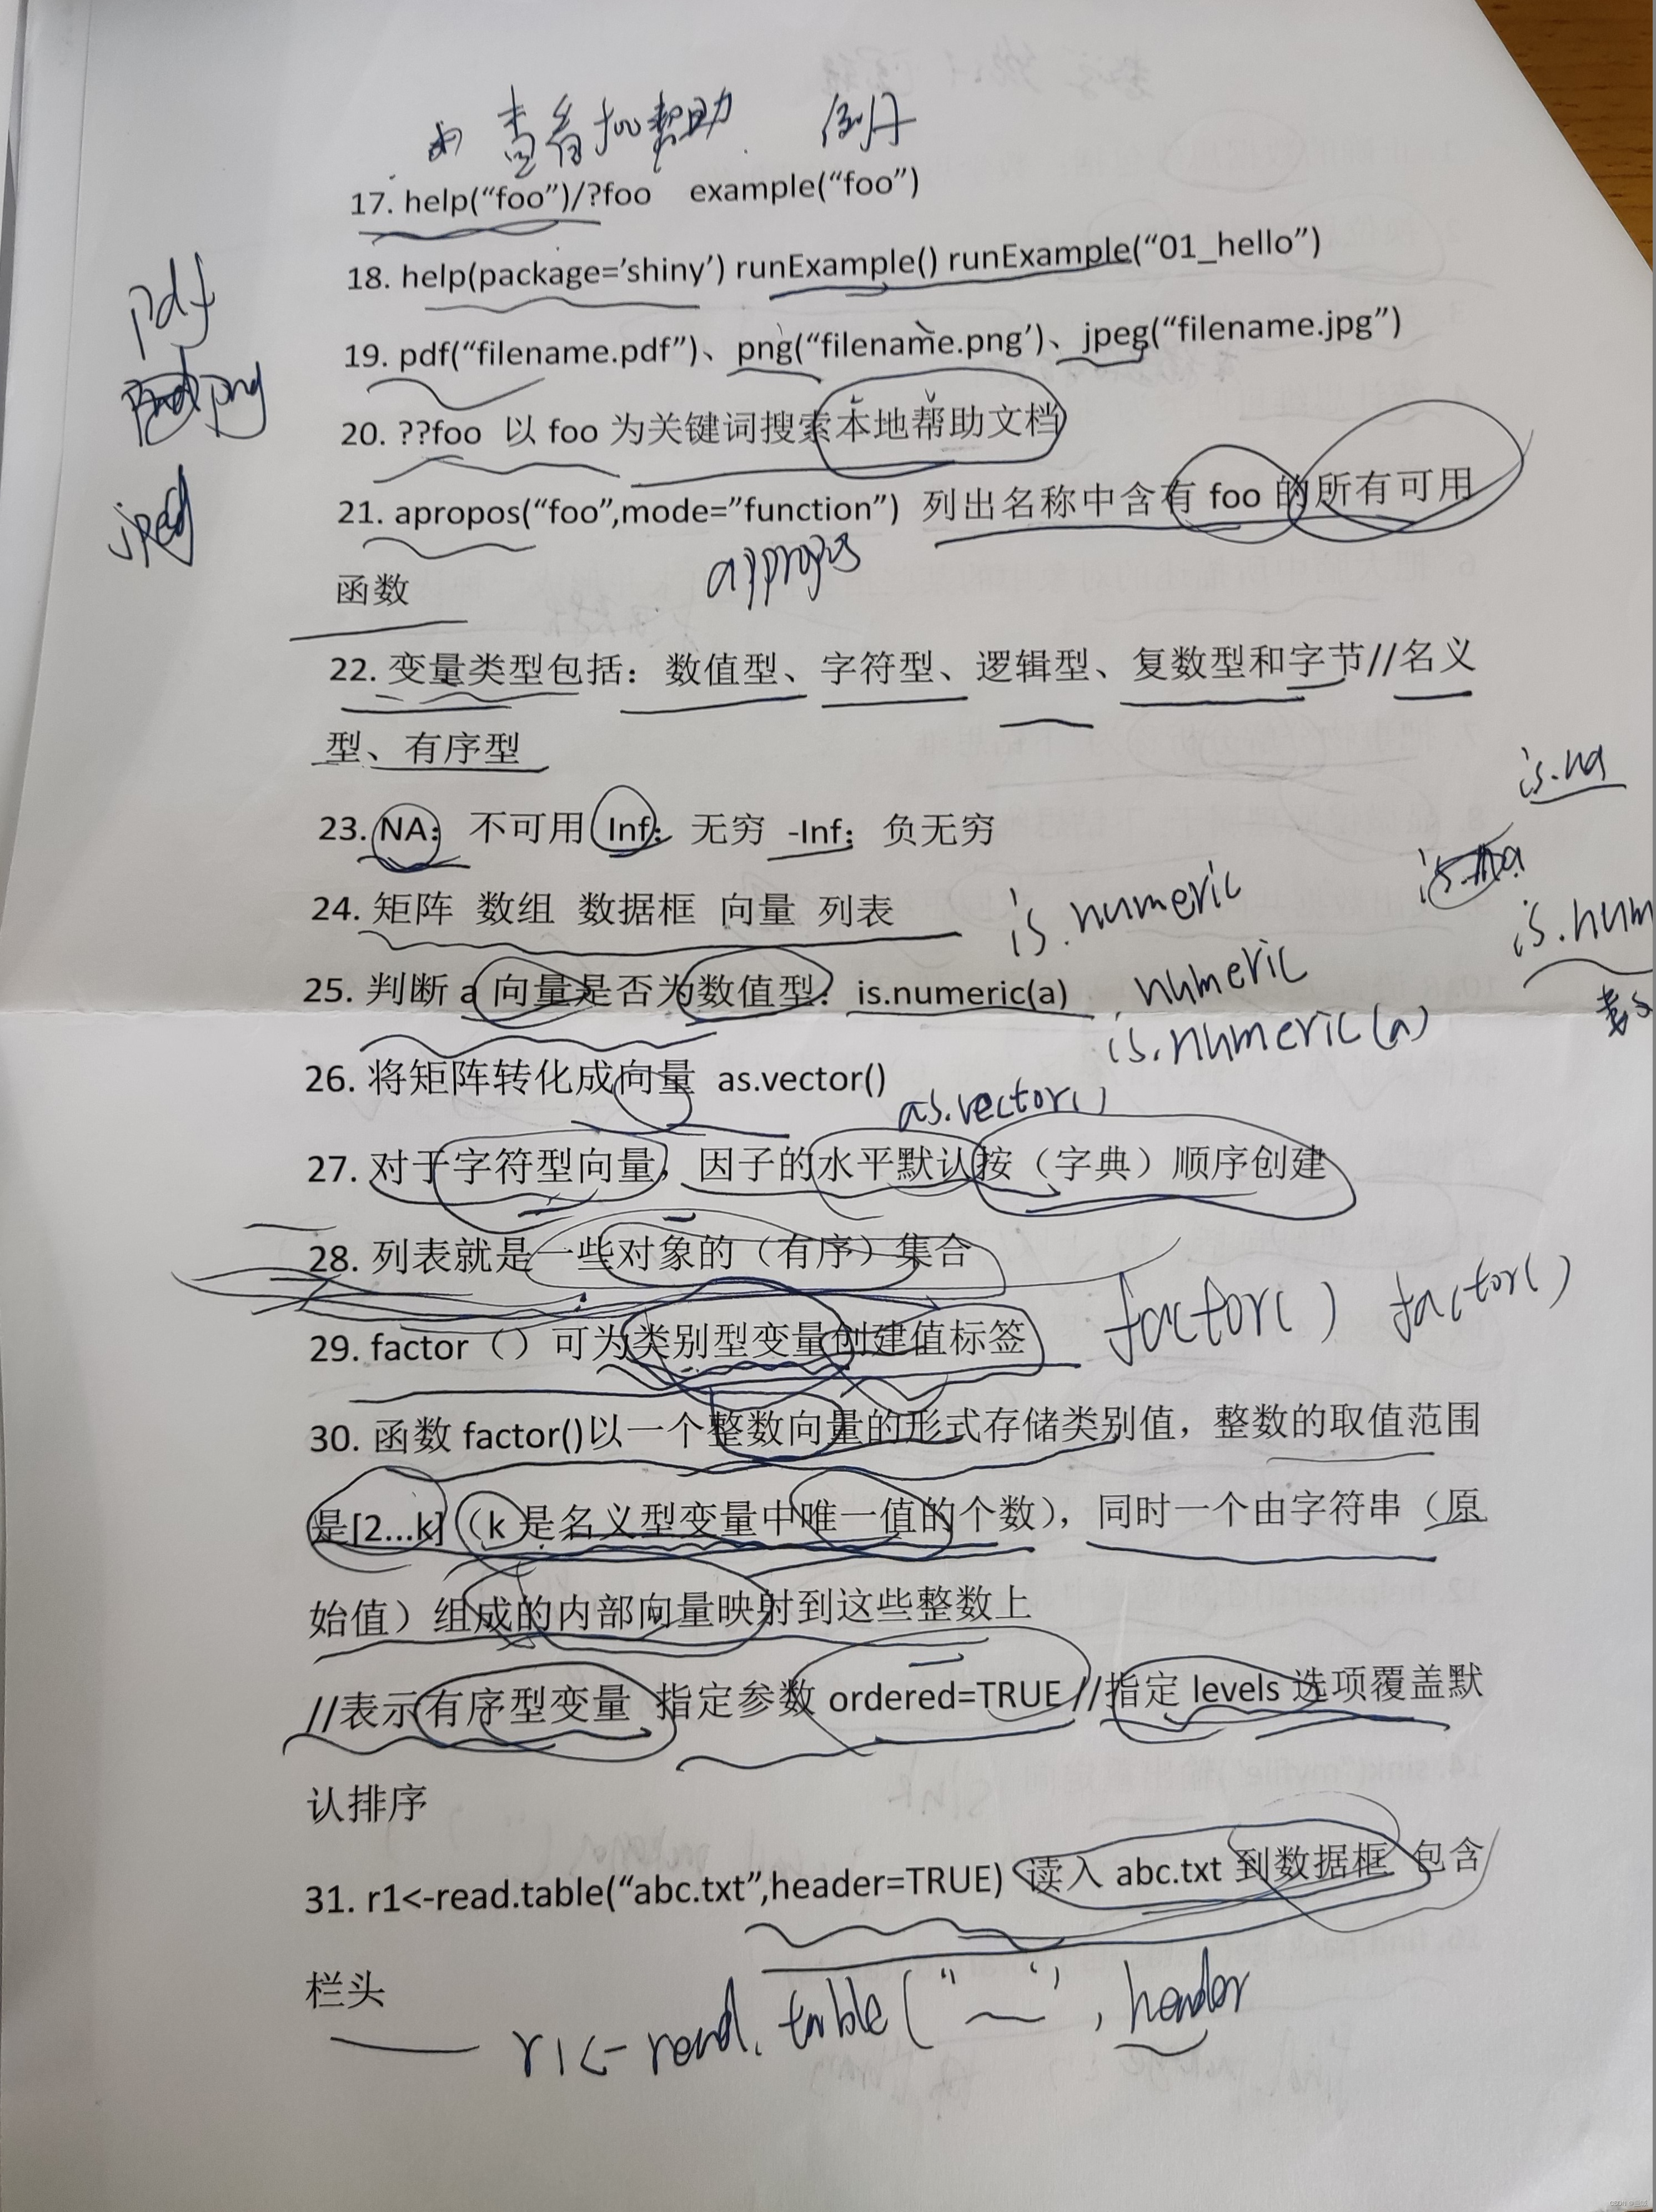 查看foo帮助 例子
17. help(“foo”)/?foo example(“foo”)
18. help(package=’shiny’) runExample() runExample(“01_hello”)
pdf
19. pdf(“filename.pdf”)、png(“filename.png’)、jpeg(“filename.jpg”)
png
20. ??foo 以 foo 为关键词搜索本地帮助文档
21. apropos(“foo”,mode=”function”) 列出名称中含有 foo 的所有可用
函数
22. 变量类型包括：数值型、字符型、逻辑型、复数型和字节//名义
型、有序型
is.na
23. NA：不可用 Inf：无穷 -Inf：负无穷
24. 矩阵 数组 数据框 向量 列表
is.numeric
is.num
25. 判断 a 向量是否为数值型：is.numeric(a)
numeric
is.numeric(a)
26. 将矩阵转化成向量 as.vector()
as.vector()
27. 对于字符型向量，因子的水平默认按（字典）顺序创建
28. 列表就是一些对象的（有序）集合
29. factor（）可为类别型变量创建值标签
factor() factor()
30. 函数 factor()以一个整数向量的形式存储类别值，整数的取值范围
是[2...k]（k 是名义型变量中唯一值的个数），同时一个由字符串（原
始值）组成的内部向量映射到这些整数上
//表示有序型变量 指定参数 ordered=TRUE //指定 levels 选项覆盖默
认排序
31. r1<-read.table(“abc.txt”,header=TRUE) 读入 abc.txt 到数据框 包含
栏头
r1<-read.table(“ ”, header